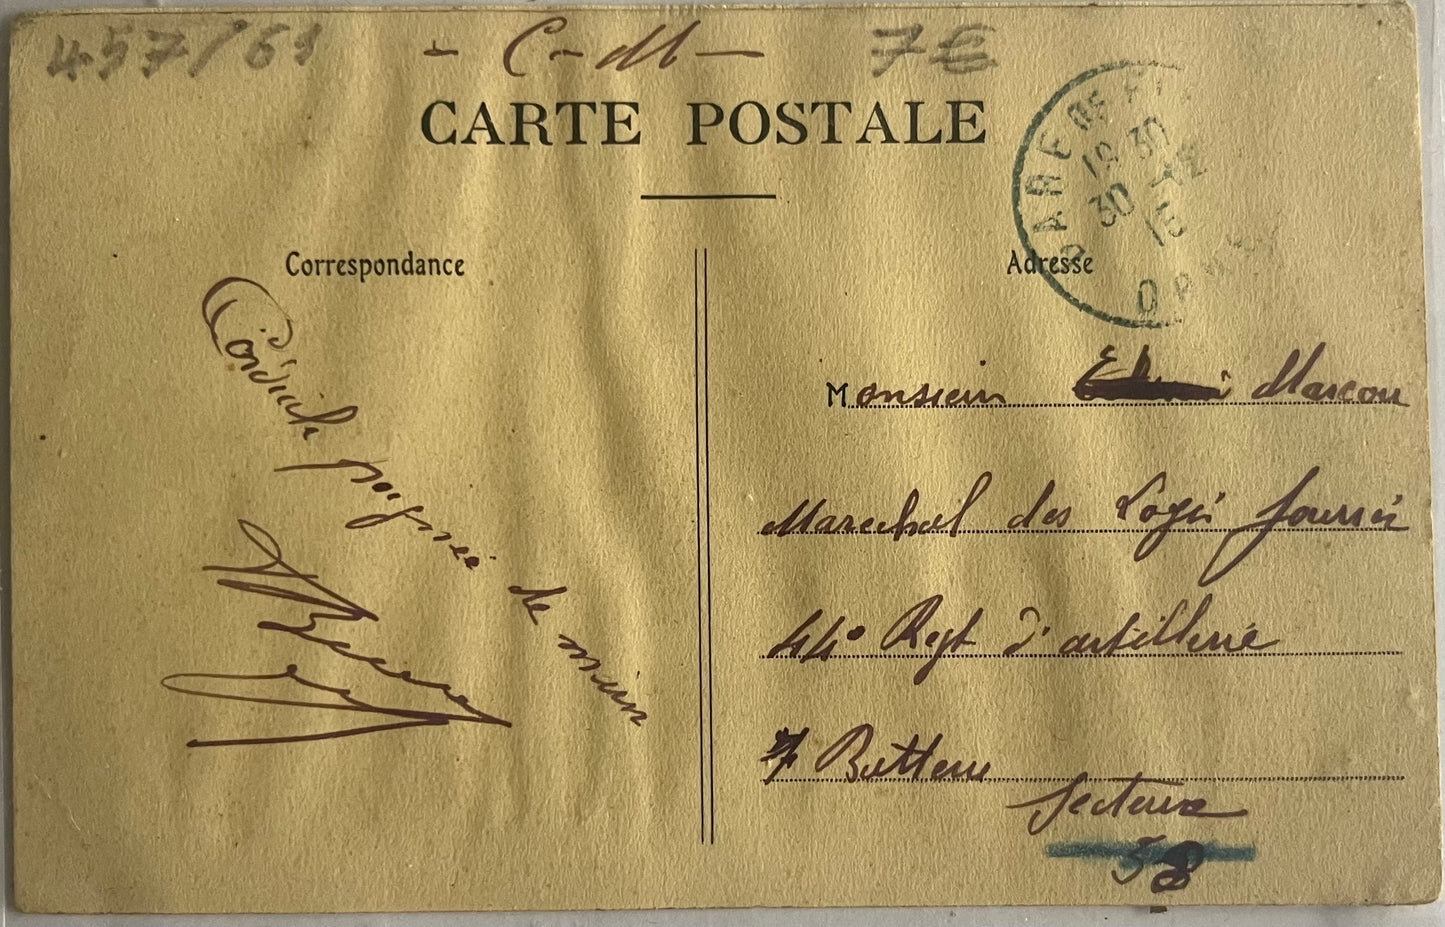 457/61
- C-M -
7€
CARTE POSTALE
GARE DE
18 30
30 -12
15
ORAN
Correspondance
Adresse
Cordiale poignée de main
Monsieur Marcou
Marechal des Logis fourrier
44e Regt d'artillerie
7 Batterie
Secteur
58